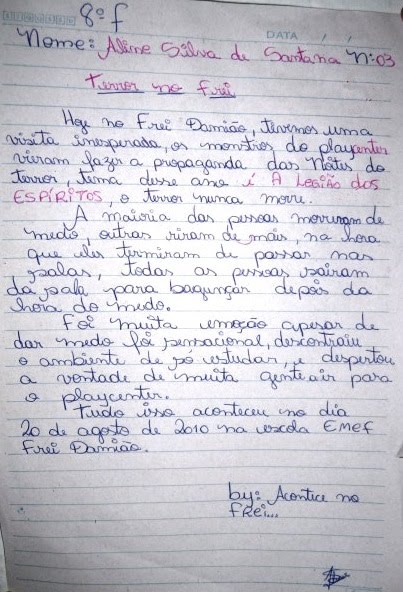 8º f
DATA / /
Nome: Aline Silva de Santana Nº:03
Terror no Frei
Hoje no Frei Damião, tivemos uma
visita inesperada, os monstros do playcenter
vieram fazer a propaganda das Noites do
terror, tema desse ano é A LEGIÃO DOS
ESPÍRITOS, o terror nunca morre.
A maioria das pessoas morreram de
medo, outras riram de mais, na hora
que eles terminaram de passar nas
salas, todas as pessoas sairam
da sala para bagunçar depois da
hora do medo.
Foi muita emoção apesar de
dar medo foi sensacional, descontraiu
o ambiente de só estudar, e despertou
a vontade de muita gente air para
o playcenter.
Tudo isso aconteceu no dia
20 de agosto de 2010 na escola EMEF
Frei Damião.
by: Acontece no
FREI...